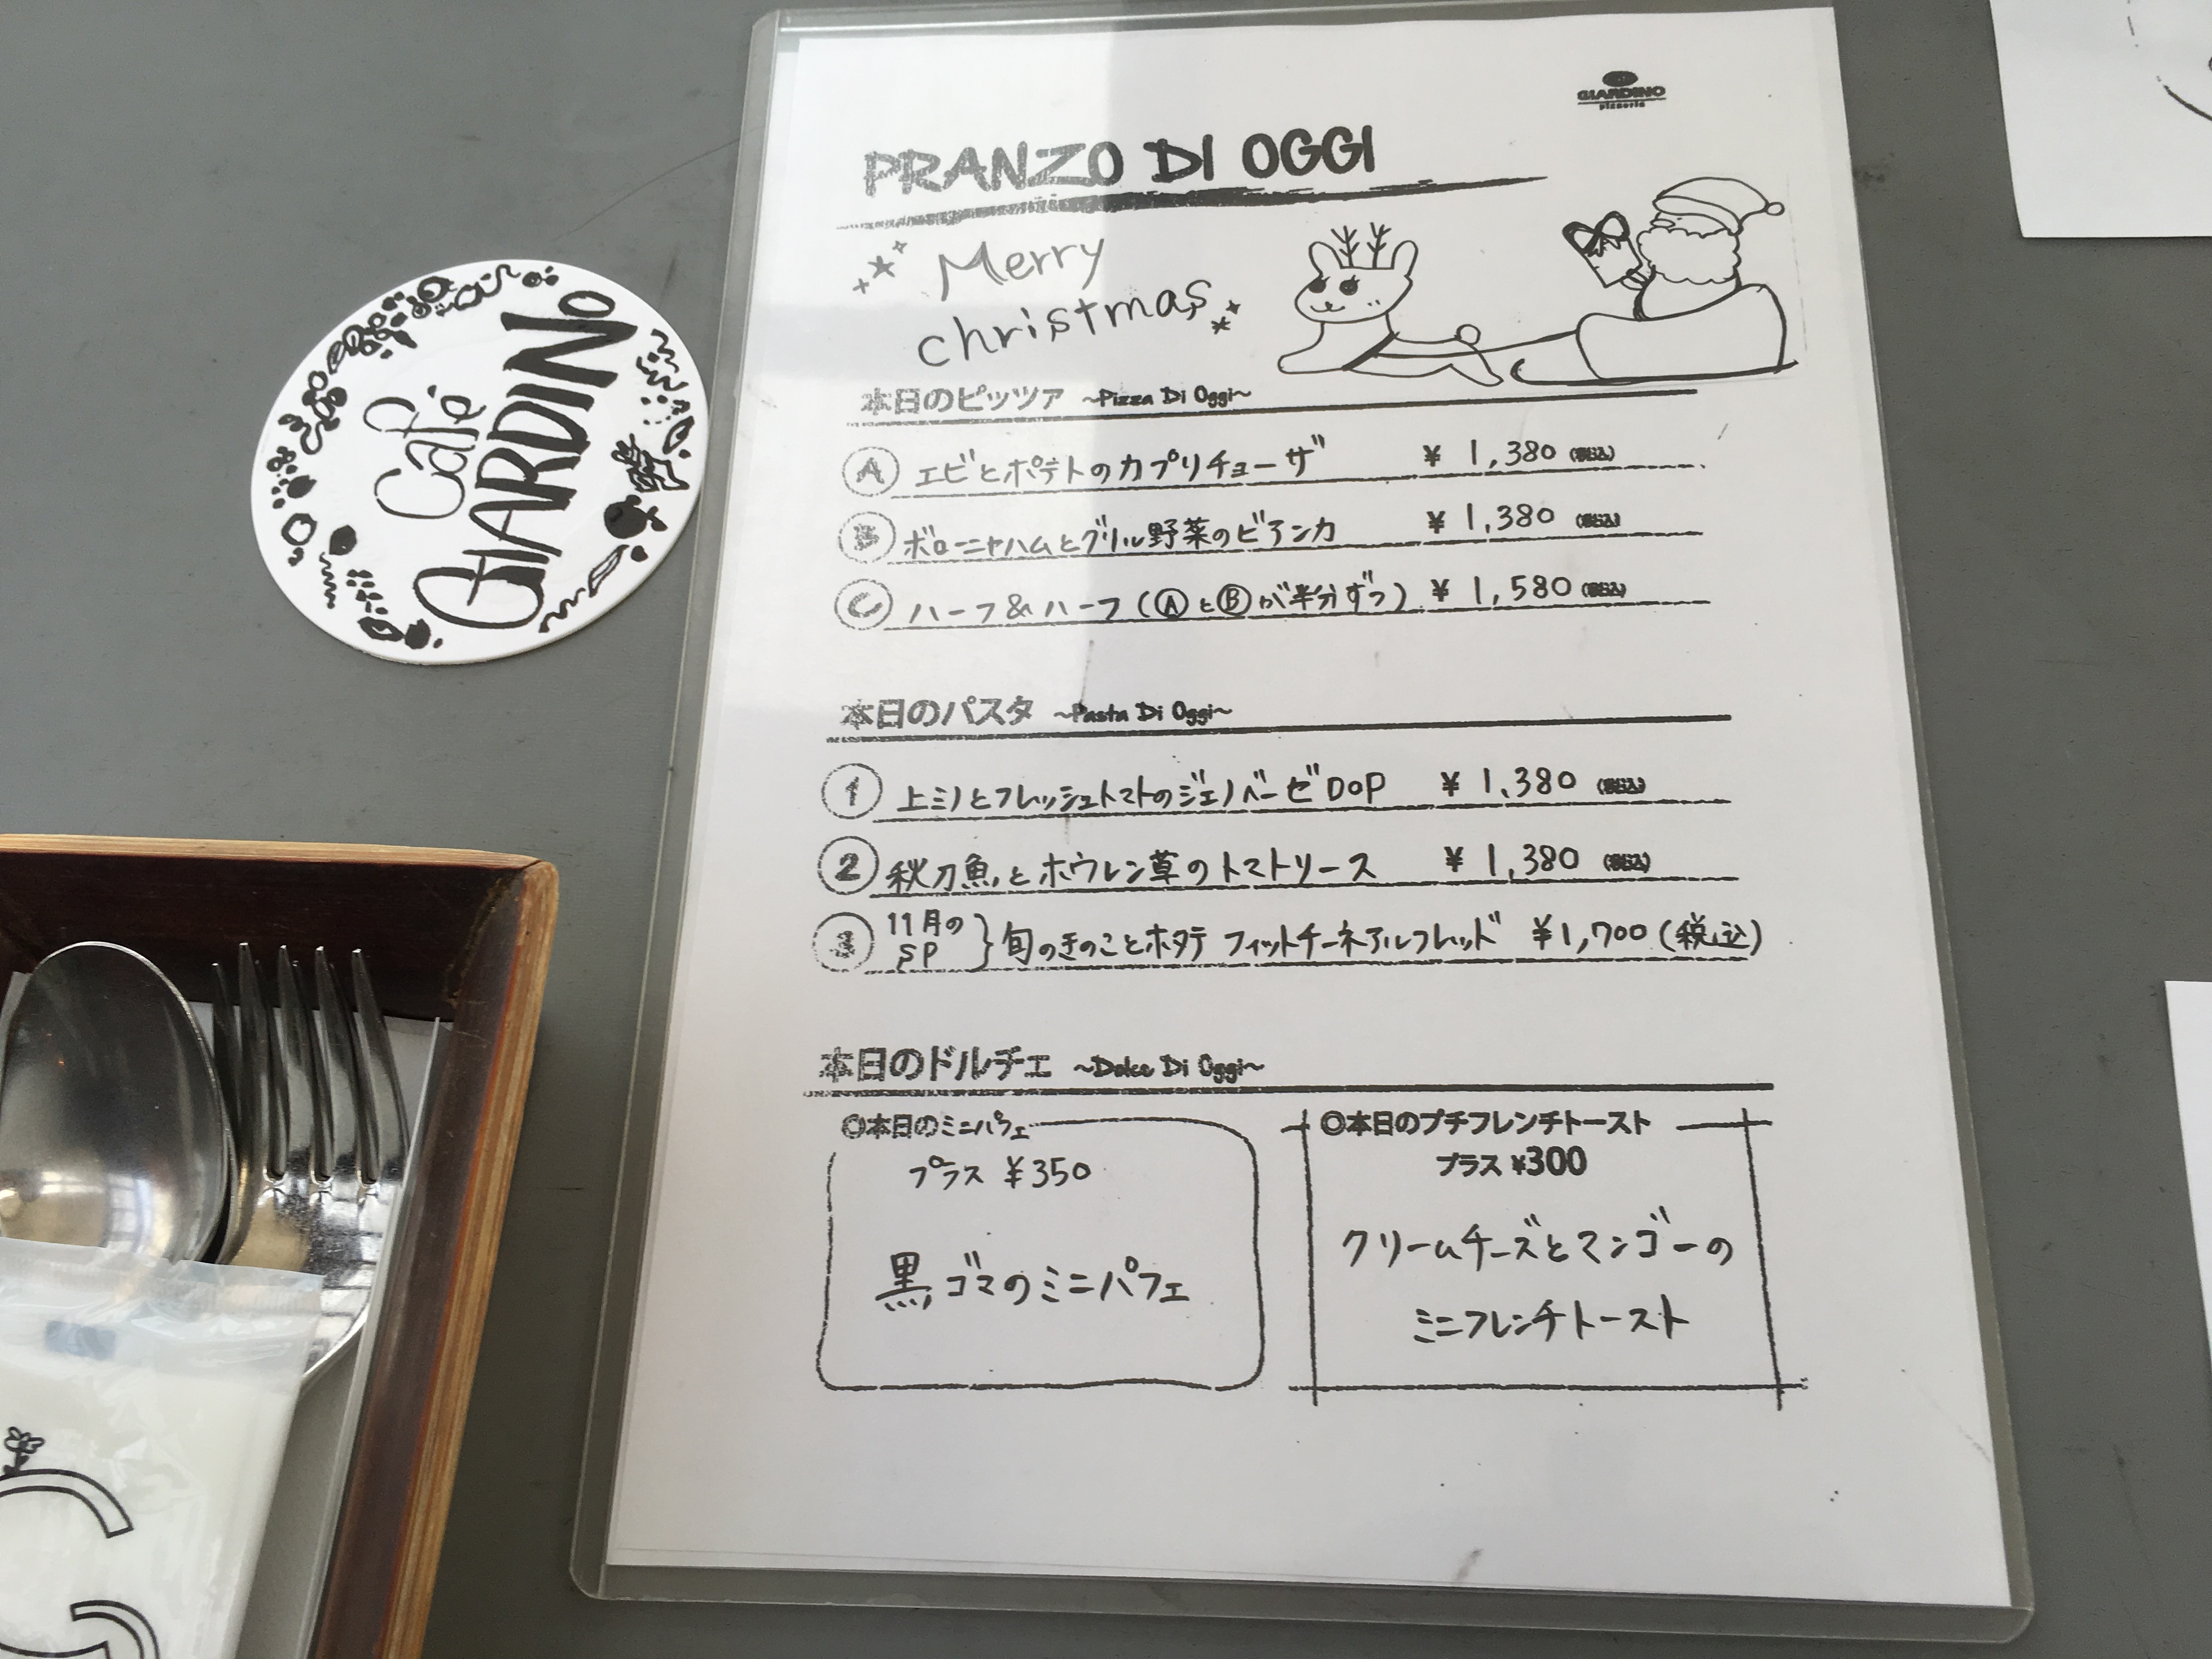 GIARDINO
pizzeria
PRANZO DI OGGI
Merry
christmas
本日のピッツァ ~Pizza Di Oggi~
A エビとポテトのカプリチョーザ ¥ 1,380 (税込)
B ボローニャハムとグリル野菜のビアンカ ¥ 1,380 (税込)
C ハーフ&ハーフ(ⒶとⒷが半分ずつ) ¥ 1,580 (税込)
本日のパスタ ~Pasta Di Oggi~
1 上ミノとフレッシュトマトのジェノベーゼDOP ¥ 1,380 (税込)
2 秋刀魚とホウレン草のトマトソース ¥ 1,380 (税込)
3 11月のSP}旬のきのことホタテ フィットチーネアルフレッド ¥1,700(税込)
本日のドルチェ ~Dolce Di Oggi~
◎本日のミニパフェ
プラス ¥350
黒ゴマのミニパフェ
◎本日のプチフレンチトースト
プラス ¥300
クリームチーズとマンゴーの
ミニフレンチトースト
Café
GIARDINO